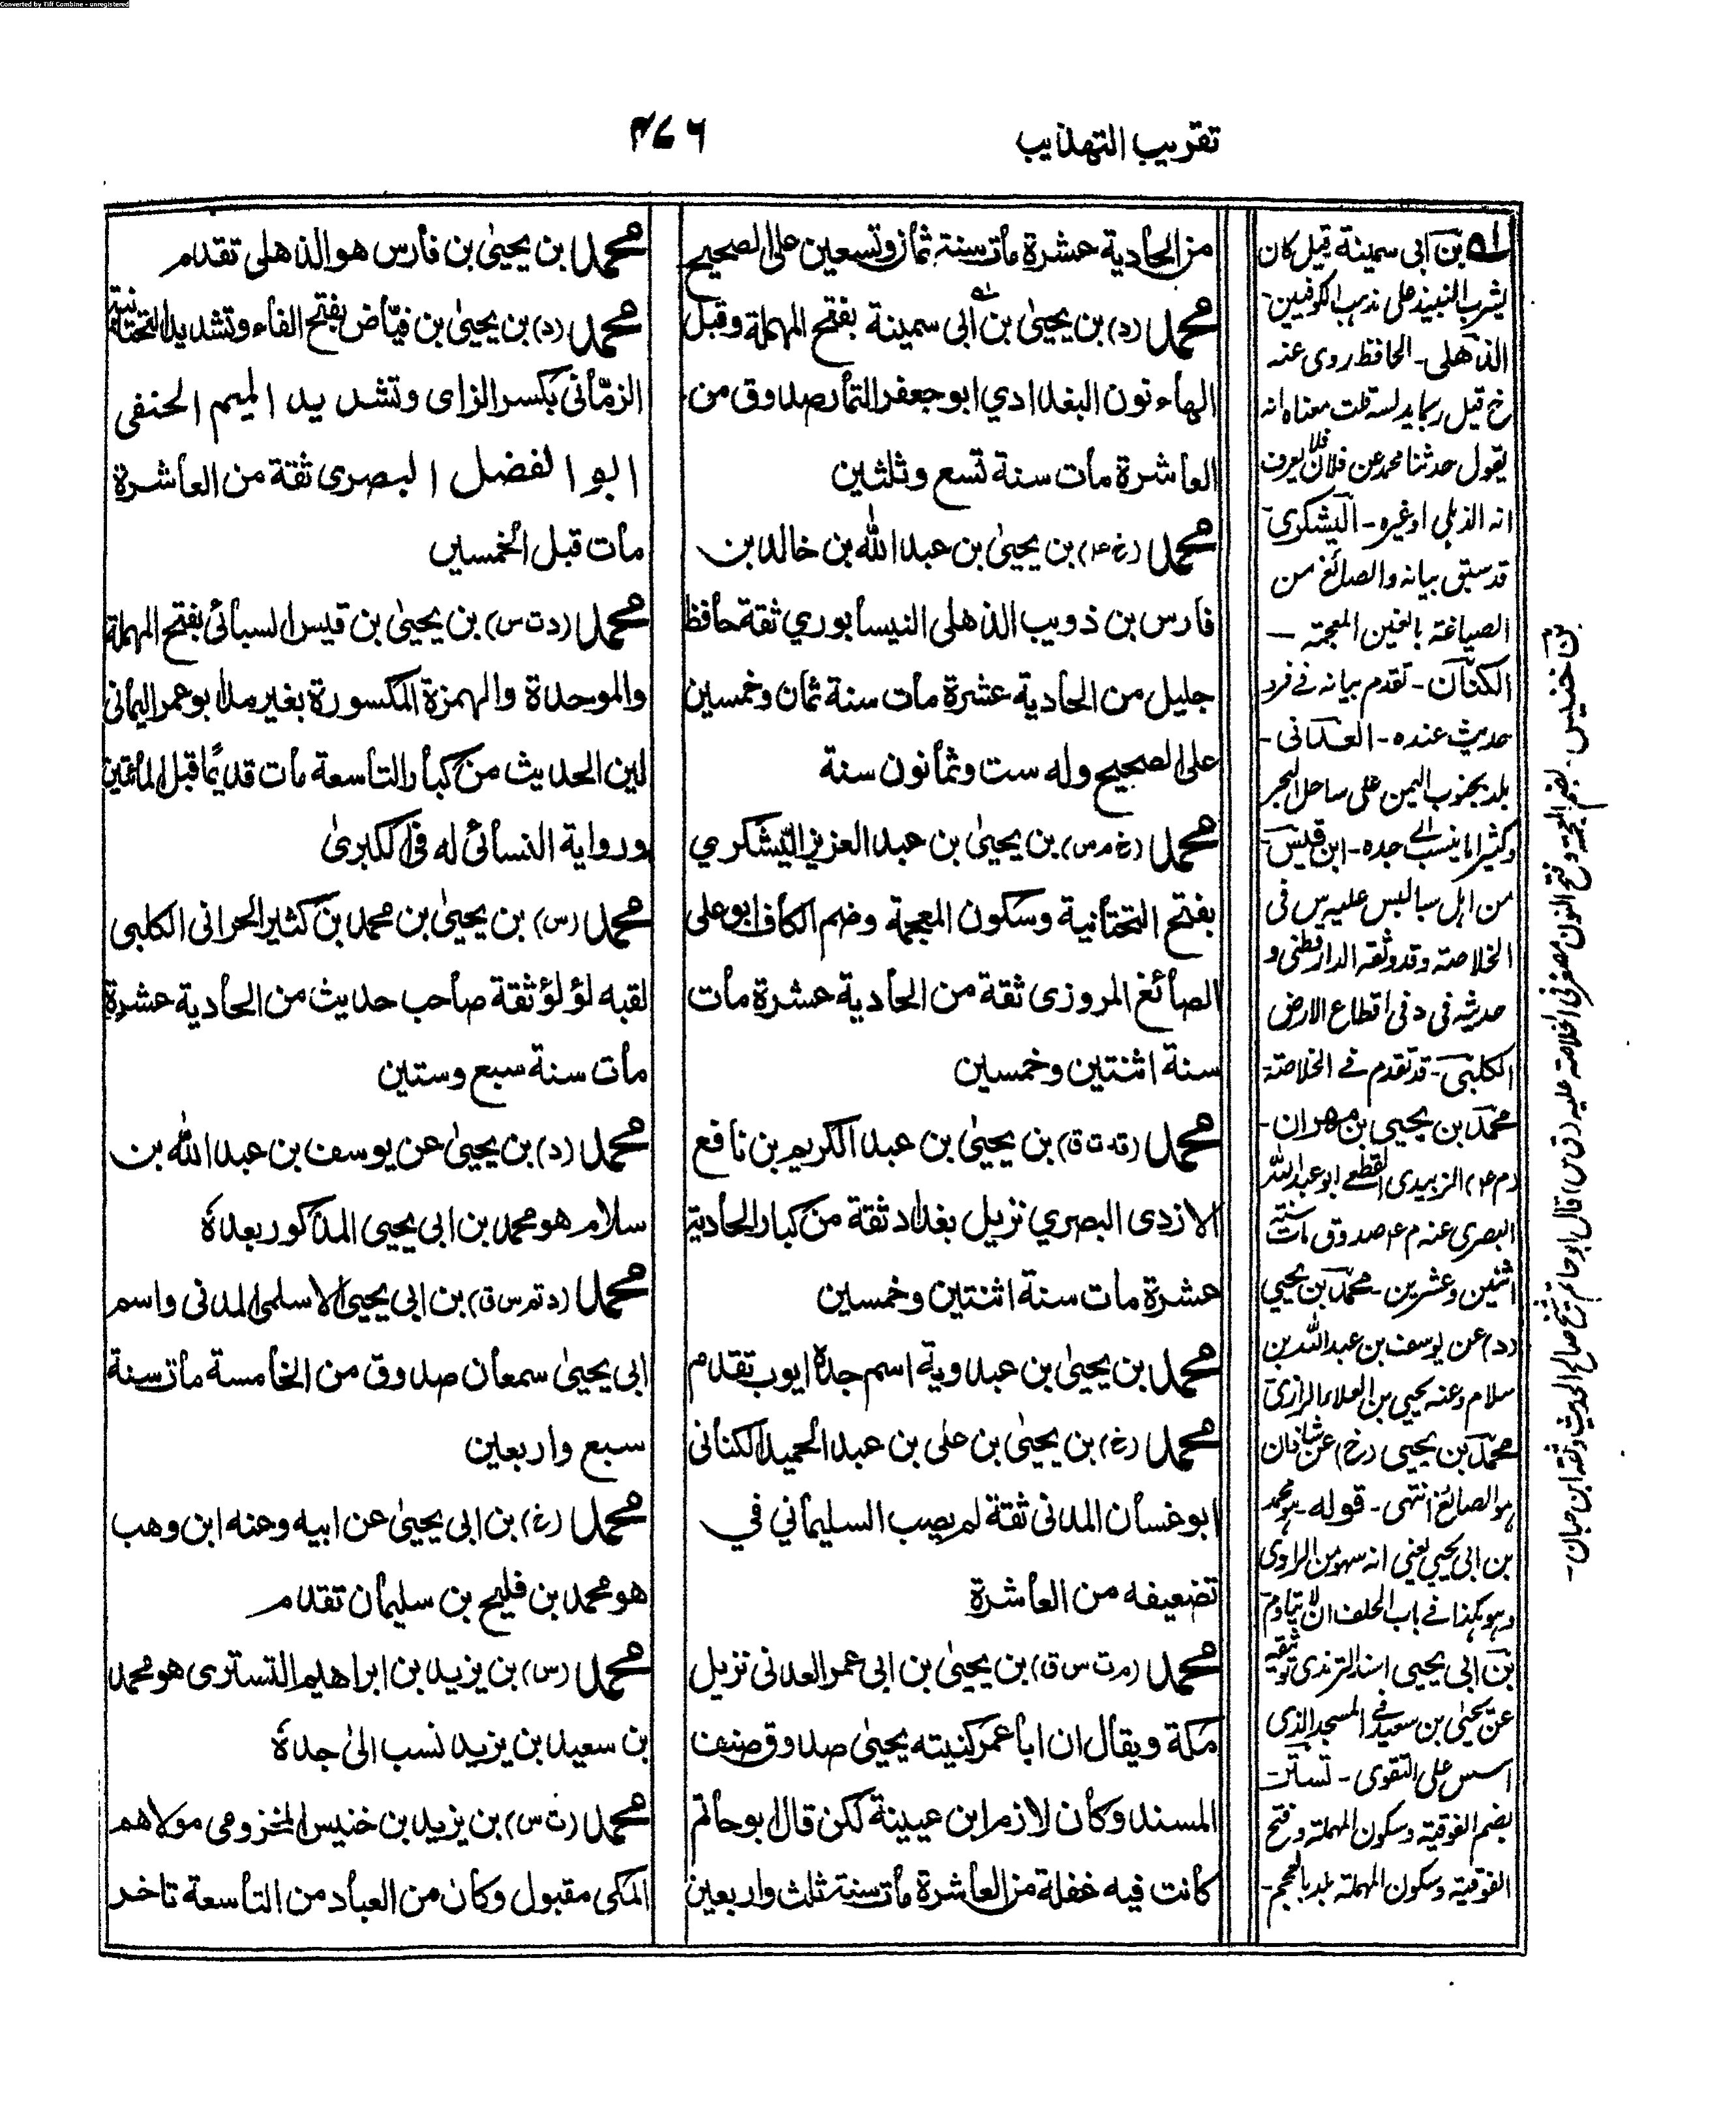 Converted by Tiff Combine - unregistered
تقريب التهذيب
٤٧٦
من الحادية عشرة مات سنة ثمان وتسعين على الصحيح
محمد (د) بن يحيى بن ابى سمينة بفتح المهملة وقبل
الهاء نون البغدادي ابو جعفر التمار صدوق من
العاشرة مات سنة تسع وثلثين
محمد (خ ٤) بن يحيى بن عبد الله بن خالد بن
فارس بن ذويب الذهلى النيسابوري ثقة حافظ
جليل من الحادية عشرة مات سنة ثمان وخمسين
على الصحيح وله ست وثمانون سنة
محمد (خ م س) بن يحيى بن عبد العزيز اليشكري
بفتح التحتانية وسكون المعجمة وضم الكاف ابو على
الصائغ المروزى ثقة من الحادية عشرة مات
سنة اثنتين وخمسين
محمد (قد ت ق) بن يحيى بن عبد الكريم بن نافع
الازدى البصري نزيل بغداد ثقة من كبار الحادية
عشرة مات سنة اثنتين وخمسين
محمد بن يحيى بن عبدوية اسم جده ايوب تقدم
محمد (خ) بن يحيى بن على بن عبد الحميد الكنانى
ابو غسان المدنى ثقة لم يصب السليماني في
تضعيفه من العاشرة
محمد (م ت س ق) بن يحيى بن ابى عمر العدنى نزيل
مكة ويقال ان ابا عمر كنيته يحيى صدوق صنف
المسند وكان لازم ابن عيينة لكن قال ابو حاتم
كانت فيه غفلة من العاشرة مات سنة ثلث واربعين
محمد بن يحيى بن فارس هو الذهلى تقدم
محمد (د) بن يحيى بن فيّاض بفتح الفاء وتشديد التحتانية
الزمّانى بكسر الزاى وتشديد الميم الحنفى
ابو الفضل البصرى ثقة من العاشرة
مات قبل الخمسين
محمد (د ت س) بن يحيى بن قيس السبائى بفتح المهملة
والموحدة والهمزة المكسورة بغير مد ابو عمر اليمانى
لين الحديث من كبار التاسعة مات قديمًا قبل المائتين
ورواية النسائى له فى الكبرى
محمد (س) بن يحيى بن محمد بن كثير الحرانى الكلبى
لقبه لؤلؤ ثقة صاحب حديث من الحادية عشرة
مات سنة سبع وستين
محمد (د) بن يحيى عن يوسف بن عبد الله بن
سلام هو محمد بن ابى يحيى المذكور بعده
محمد (د تم س ق) بن ابى يحيى الاسلمى المدنى واسم
ابى يحيى سمعان صدوق من الخامسة مات سنة
سبع واربعين
محمد (خ) بن ابى يحيى عن ابيه وعنه ابن وهب
هو محمد بن فليح بن سليمان تقدم
محمد (س) بن يزيد بن ابراهيم التسترى هو محمد
بن سعيد بن يزيد نسب الى جده
محمد (ت س) بن يزيد بن خنيس المخزومى مولاهم
المكى مقبول وكان من العباد من التاسعة تاخر
بن ابى سمينة قيل كان
يشرب النبيذ على مذهب الكوفيين -
الذهلى - الحافظ روى عنه
خ قيل ربما يدلسه قلت معناه انه
يقول حدثنا محمد عن فلان فلا يعرف
انه الذهلى او غيره - اليشكرى
قد سبق بيانه والصائغ من
الصياغة بالغين المعجمة -
الكنانى - تقدم بيانه فى فرد
حديث عنده - العدنى -
بلد بجنوب اليمن على ساحل البحر
وكثيرا ما ينسب الى جده - ابن قيس -
من اهل سبا ليس عليه س فى
الخلاصة وقد وثقه الدارقطنى و
حديثه فى د فى اقطاع الارض
الكلبى - قد تقدم فى الخلاصة
محمد بن يحيى بن مهران -
(م ٤) الزبيدى القطعى ابو عبد الله
البصرى عنه م ٤ صدوق مات سنة
اثنين وعشرين - محمد بن يحيى
(د) عن يوسف بن عبد الله بن
سلام وعنه يحيى بن العلاء الرازى
محمد بن يحيى (خ) عن شاذان
هو الصائغ انتهى - قوله - هو محمد
بن ابى يحيى يعنى انه سهو من الراوى
وهو هكذا فى باب الحلف ان لا يتادم
بن ابى يحيى اسند الترمذى توثيقه
عن يحيى بن سعيد فى المسجد الذى
اسس على التقوى - تستر
بضم الفوقية وسكون المهملة وفتح
الفوقية وسكون المهملة بلد بالعجم -
بن خنيس - بضم المعجمة وفتح النون مصغر فى الخلاصة عليه (ق س) قال ابو حاتم شيخ صالح الحديث وثقه ابن حبان -